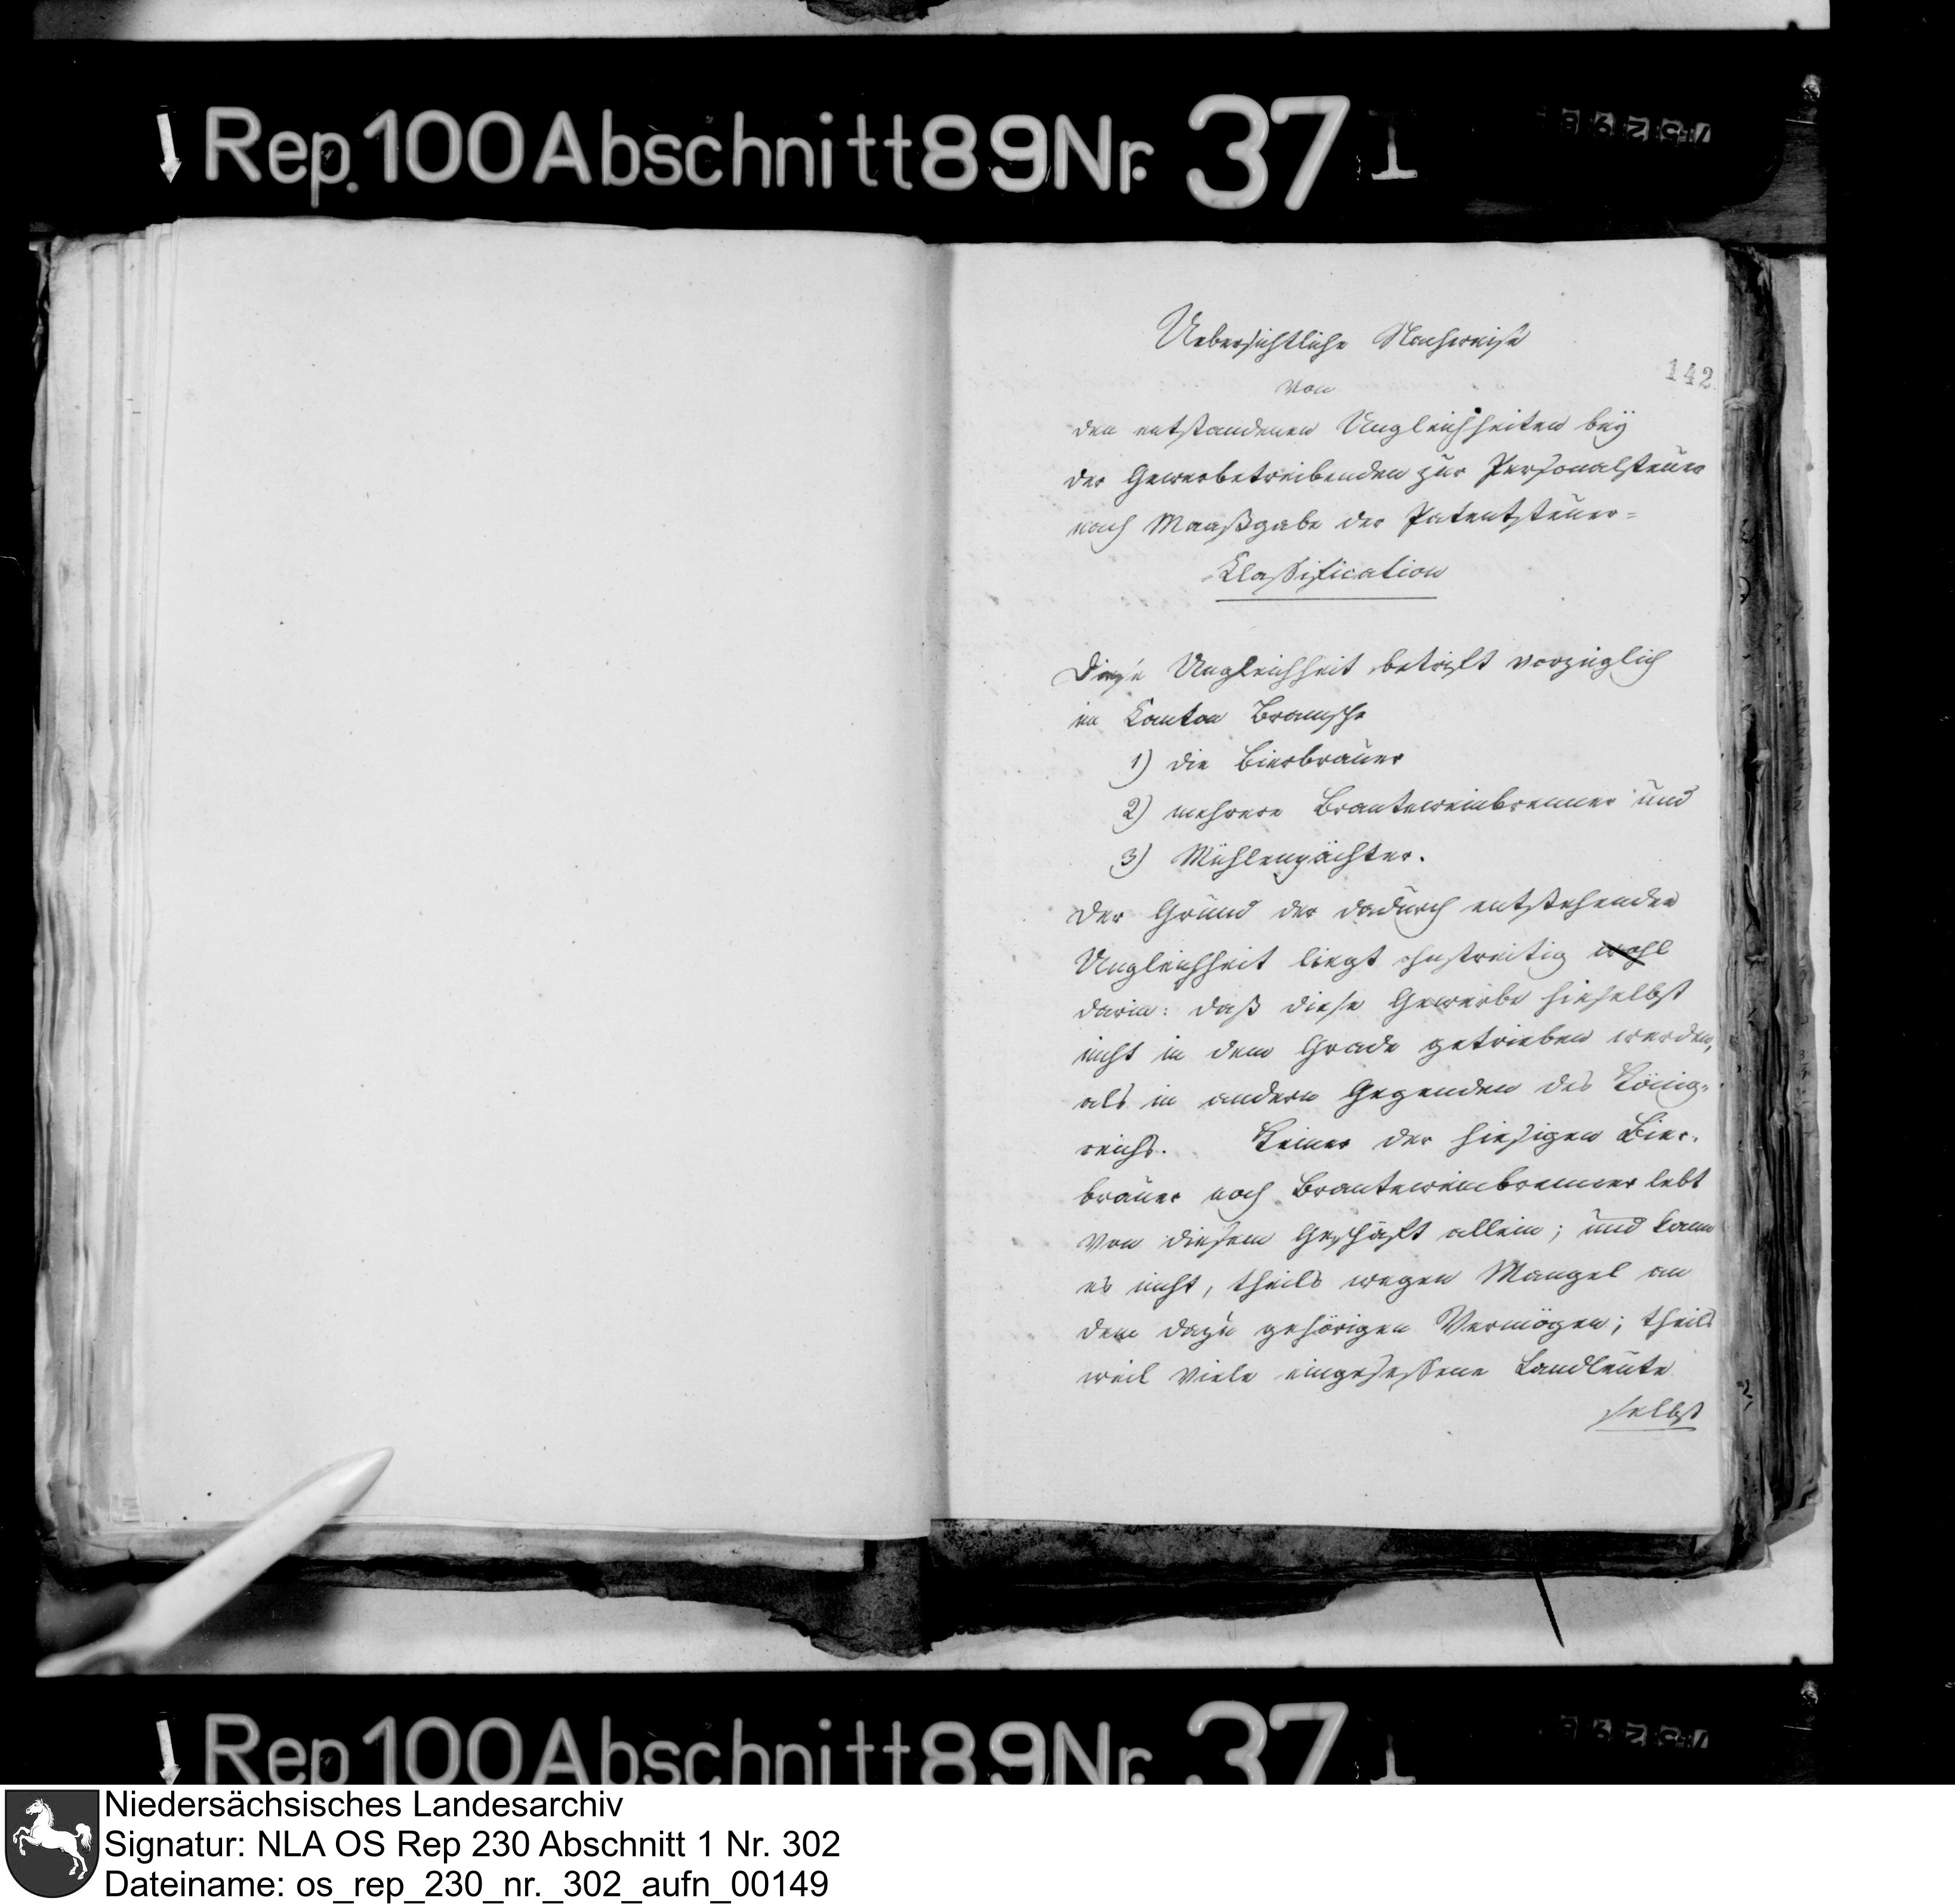 Rep. 100 Abschnitt 89 Nr. 37 I
Uebersichtliche Nachweise
142
von
den entstandenen Ungleichheiten bey
der Gewerbetreibenden zur Personalsteuer
nach Maaßgabe der Patentsteuer=
Klassification
Diese Ungleichheit betrift vorzüglich
im Canton Bramsche
1) die Bierbrauer
2) mehrere Branteweinbrenner und
3) Mühlenpächter.
Der Grund der dadurch entstehenden
Ungleichheit liegt ohnstreitig wohl
darin: daß diese Gewerbe hieselbst
nicht in dem Grade getrieben werden,
als in andern Gegenden des König-
reichs. Keiner der hiesigen Bier-
brauer noch Branteweinbrenner lebt
von diesem Geschäft allein; und kann
es nicht, theils wegen Mangel an
dem dazu gehörigen Vermögen; theils
weil viele eingesessene Landleute
selbst
Rep 100 Abschnitt 89 Nr. 37 I
Niedersächsisches Landesarchiv
Signatur: NLA OS Rep 230 Abschnitt 1 Nr. 302
Dateiname: os_rep_230_nr._302_aufn_00149